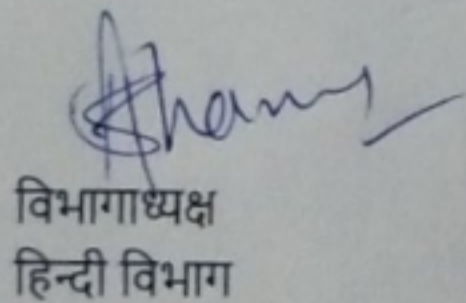 विभागाध्यक्ष
हिन्दी विभाग